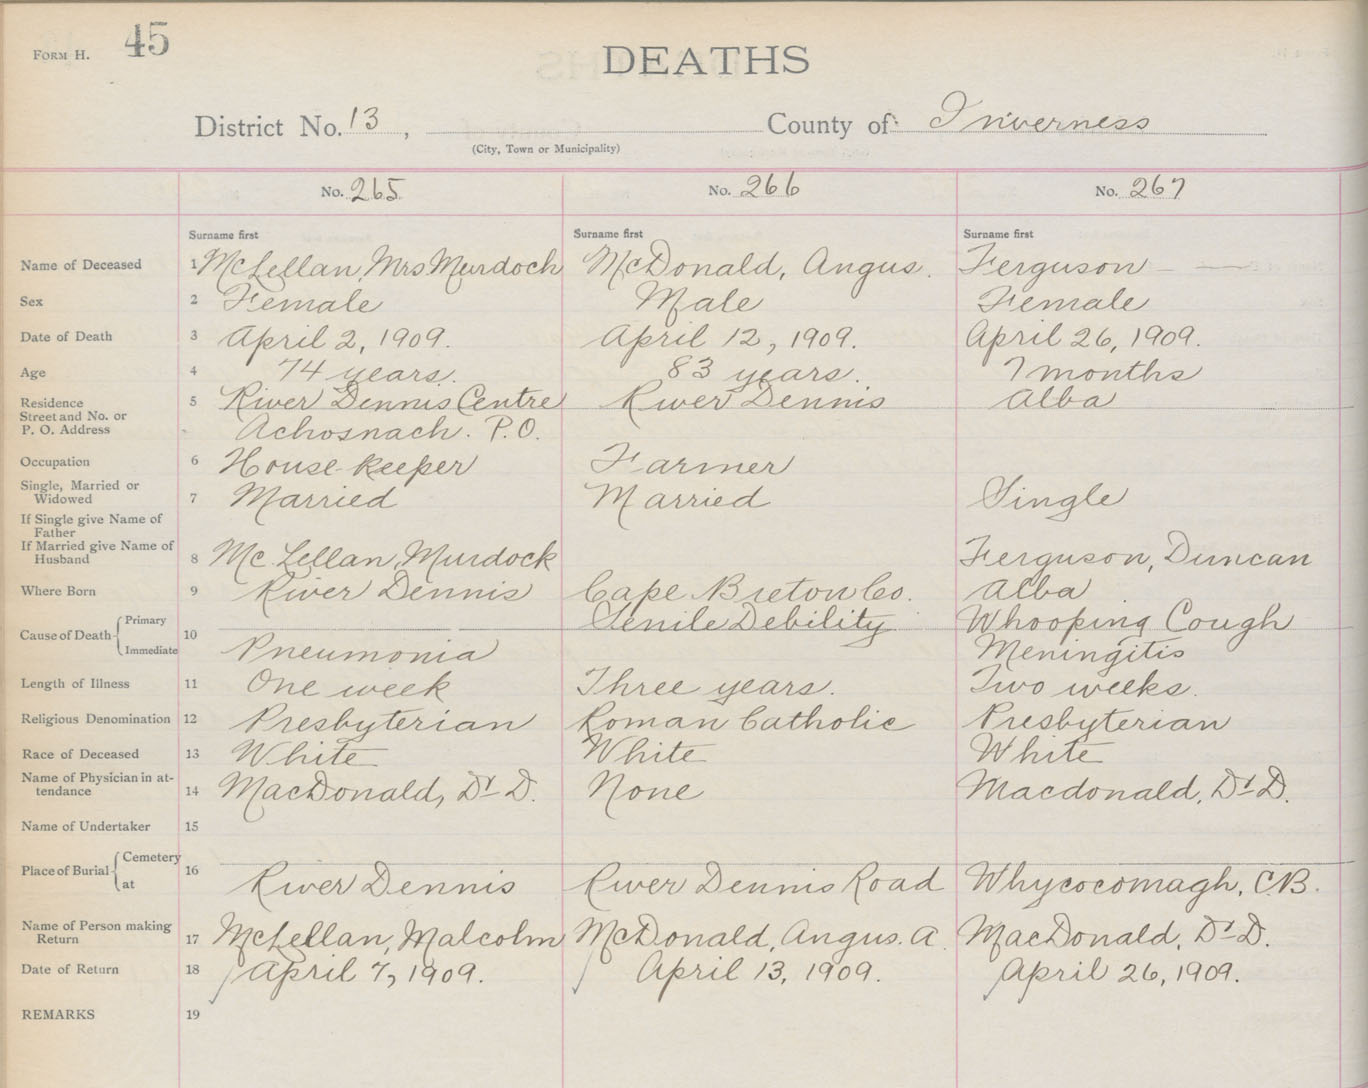 FORM H. 45
DEATHS
District No. 13, County of Inverness
(City, Town or Municipality)
No. 265 No. 266 No. 267
Surname first Surname first Surname first
Name of Deceased 1 McLellan, Mrs Murdoch McDonald, Angus. Ferguson — —
Sex 2 Female Male Female
Date of Death 3 April 2, 1909. April 12, 1909. April 26, 1909.
Age 4 74 years. 83 years. 7 months
Residence 5 River Dennis Centre River Dennis Alba
Street and No. or
P. O. Address Achosnach. P.O.
Occupation 6 House keeper Farmer
Single, Married or
Widowed 7 Married Married Single
If Single give Name of
Father
If Married give Name of
Husband 8 McLellan, Murdock Ferguson, Duncan
Where Born 9 River Dennis Cape Breton Co. Alba
Cause of Death Primary 10 Senile Debility Whooping Cough
Immediate Pneumonia Meningitis
Length of Illness 11 One week Three years. Two weeks.
Religious Denomination 12 Presbyterian Roman Catholic Presbyterian
Race of Deceased 13 White White White
Name of Physician in at-
tendance 14 MacDonald, Dr D. None Macdonald, Dr D.
Name of Undertaker 15
Place of Burial Cemetery 16
at River Dennis River Dennis Road Whycocomagh, C.B.
Name of Person making
Return 17 McLellan, Malcolm McDonald, Angus. A MacDonald, Dr D.
Date of Return 18 April 7, 1909. April 13, 1909. April 26, 1909.
REMARKS 19